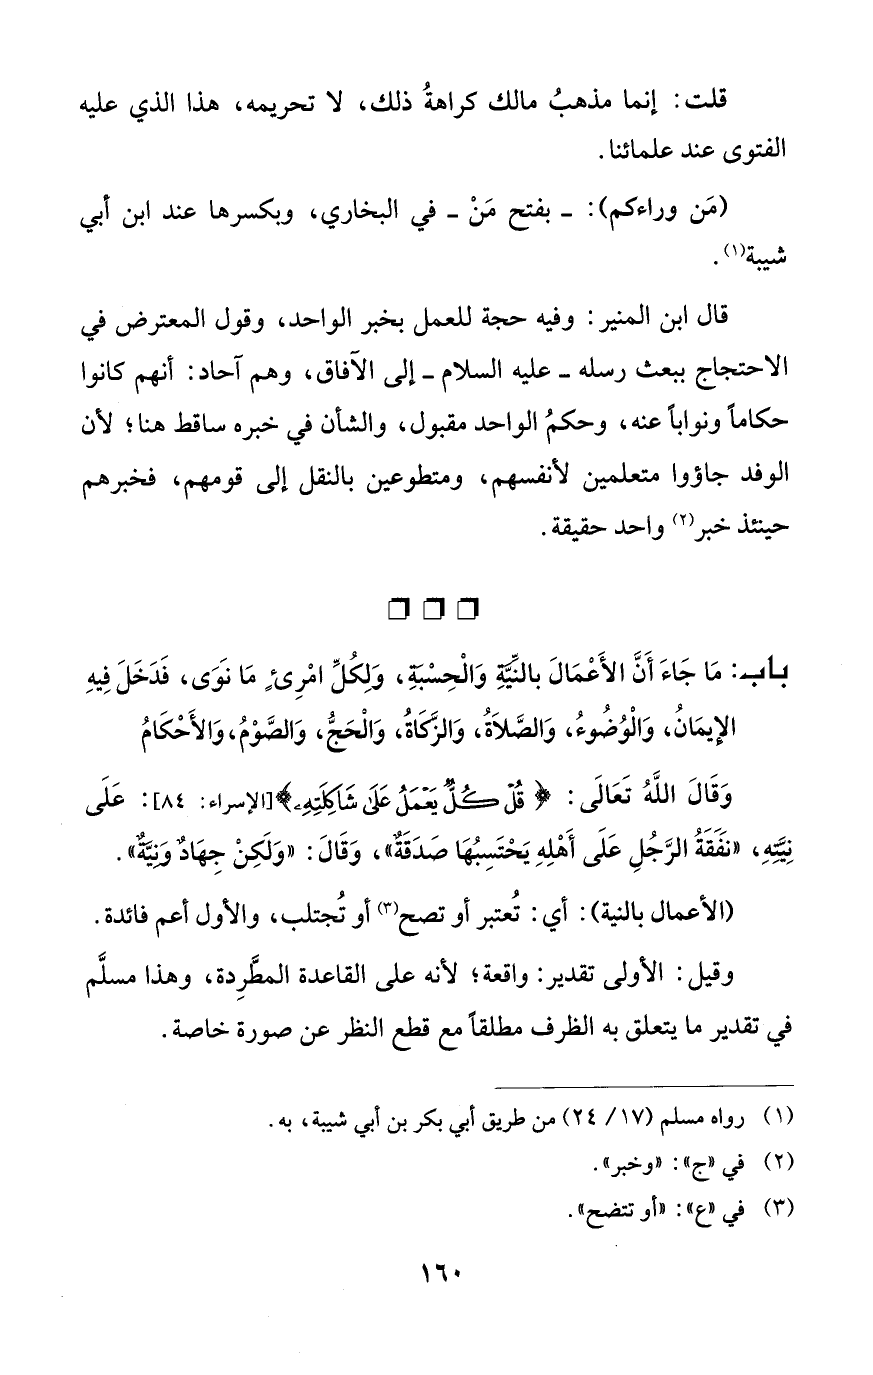 قلت: إنما مذهبُ مالك كراهةُ ذلك، لا تحريمه، هذا الذي عليه
الفتوى عند علمائنا.
(مَن وراءكم): ـ بفتح مَنْ ـ في البخاري، وبكسرها عند ابن أبي
شيبة(١).
قال ابن المنير: وفيه حجة للعمل بخبر الواحد، وقول المعترض في
الاحتجاج ببعث رسله ـ عليه السلام ـ إلى الآفاق، وهم آحاد: أنهم كانوا
حكاماً ونواباً عنه، وحكمُ الواحد مقبول، والشأن في خبره ساقط هنا؛ لأن
الوفد جاؤوا متعلمين لأنفسهم، ومتطوعين بالنقل إلى قومهم، فخبرهم
حينئذ خبر(٢) واحد حقيقة.
باب: مَا جَاءَ أَنَّ الأَعْمَالَ بِالنِّيَّةِ وَالْحِسْبَةِ، وَلِكُلِّ امْرِئٍ مَا نَوَى، فَدَخَلَ فِيهِ
الإِيمَانُ، وَالْوُضُوءُ، وَالصَّلاَةُ، وَالزَّكَاةُ، وَالْحَجُّ، وَالصَّوْمُ، وَالأَحْكَامُ
وَقَالَ اللَّهُ تَعَالَى: ﴿قُلْ كُلٌّ يَعْمَلُ عَلَى شَاكِلَتِهِ﴾[الإسراء: ٨٤]: عَلَى
نِيَّتِهِ، «نَفَقَةُ الرَّجُلِ عَلَى أَهْلِهِ يَحْتَسِبُهَا صَدَقَةٌ»، وَقَالَ: «وَلَكِنْ جِهَادٌ وَنِيَّةٌ».
(الأعمال بالنية): أي: تُعتبر أو تصح(٣) أو تُجتلب، والأول أعم فائدة.
وقيل: الأولى تقدير: واقعة؛ لأنه على القاعدة المطَّرِدة، وهذا مسلَّم
في تقدير ما يتعلق به الظرف مطلقاً مع قطع النظر عن صورة خاصة.
(١) رواه مسلم (١٧/ ٢٤) من طريق أبي بكر بن أبي شيبة، به.
(٢) في «ج»: «وخبر».
(٣) في «ع»: «أو تتضح».
١٦٠